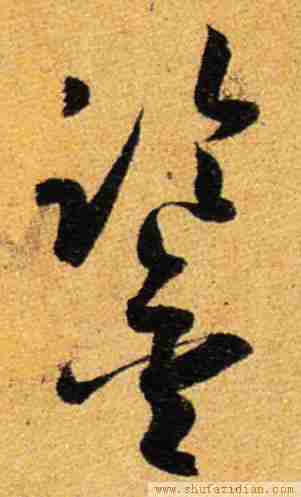 塗
www.shufazidian.com